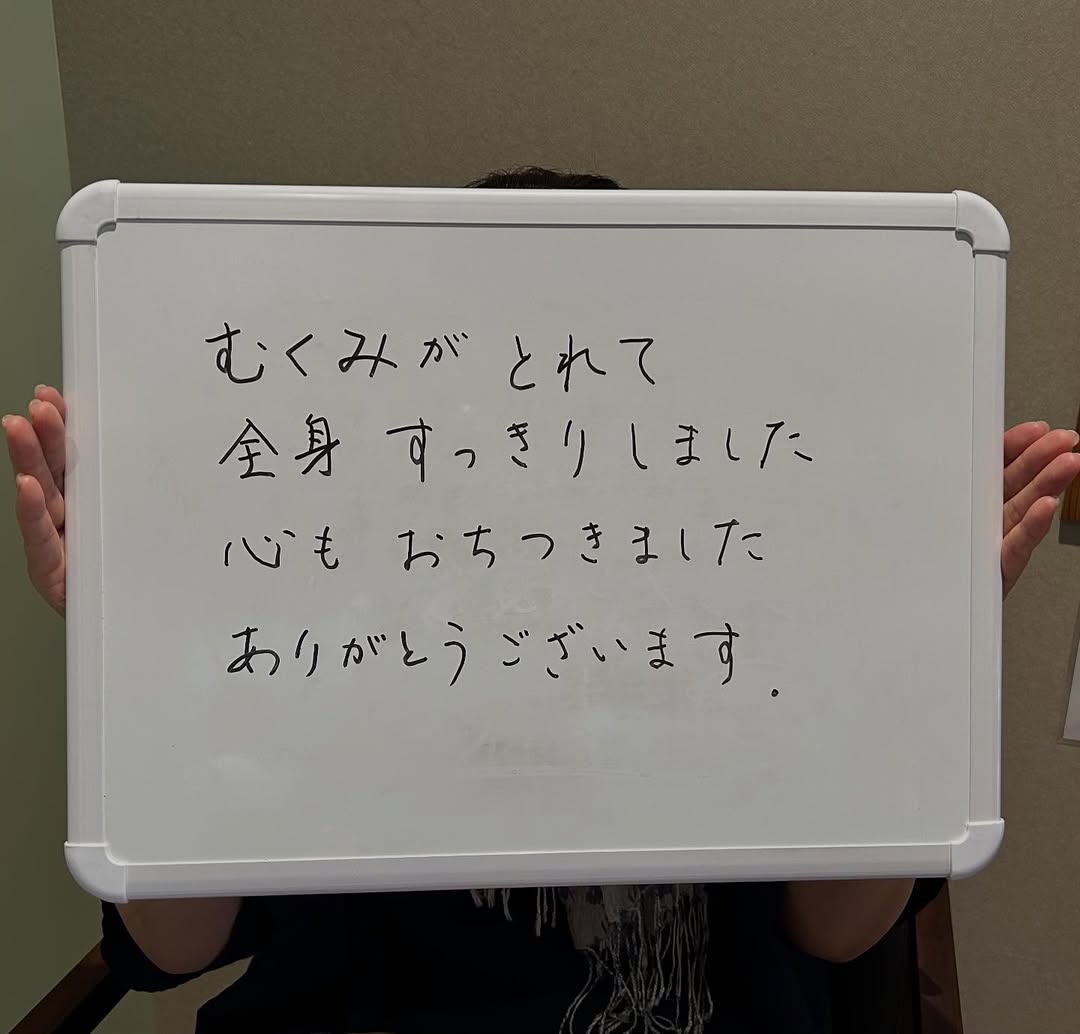 むくみが とれて
全身 すっきりしました
心も おちつきました
ありがとうございます.